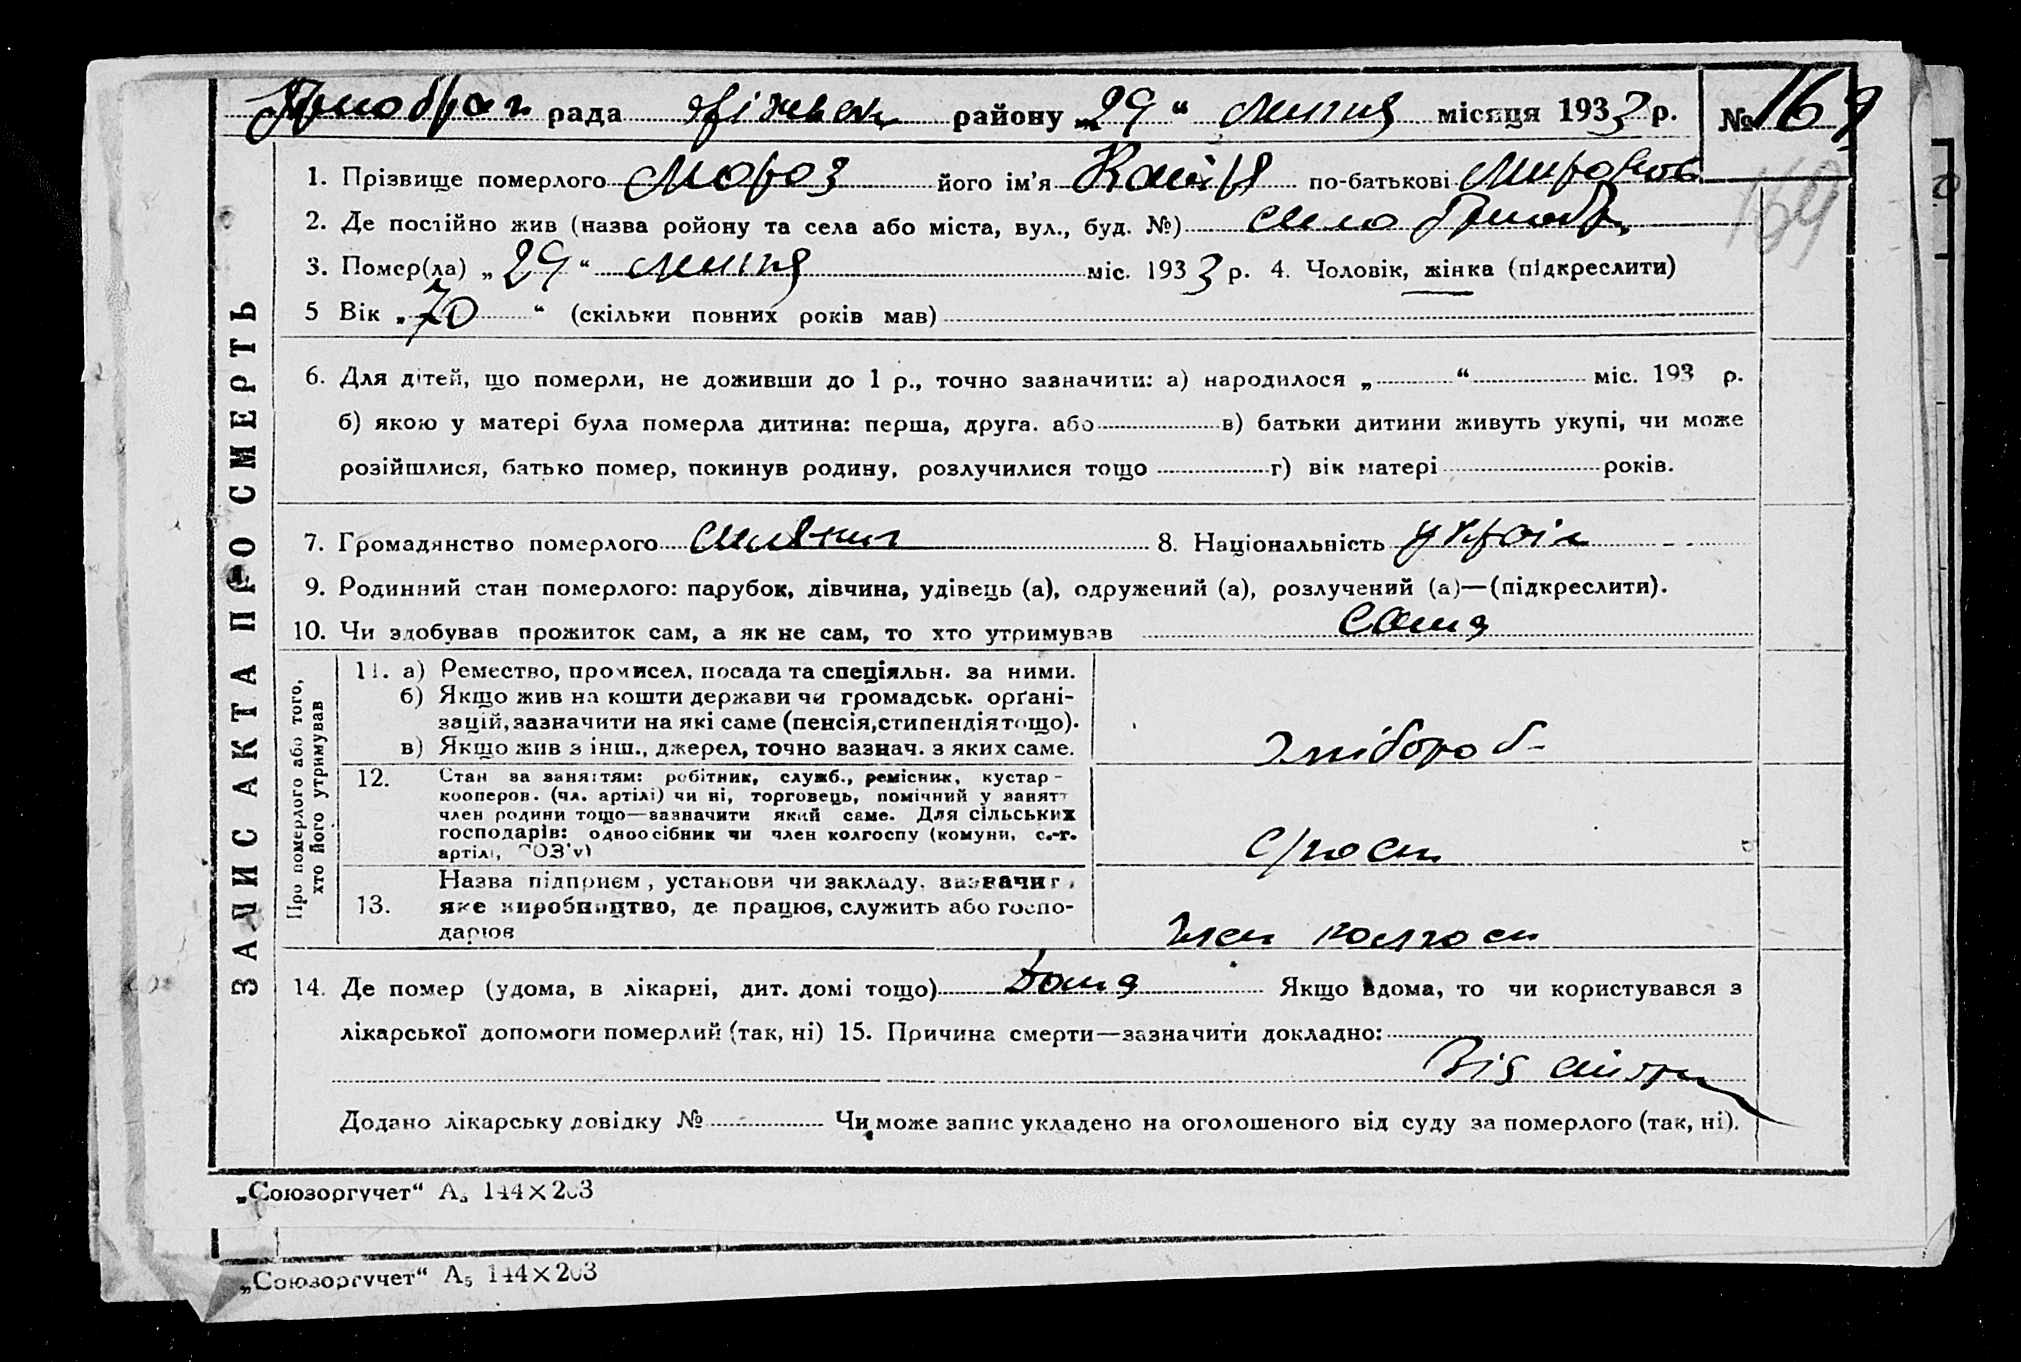 рада району „29“ липня місяця 1933 р. № 169
1. Прізвище померлого Мороз його ім’я по-батькові Миронов
169
2. Де постійно жив (назва ройону та села або міста, вул., буд. №) село
3. Помер(ла) „29“ липня міс. 1933 р. 4. Чоловік, жінка (підкреслити)
5 Вік „70“ (скільки повних років мав)
6. Для дітей, що померли, не доживши до 1 р., точно зазначити: а) народилося „ “ міс. 193 р.
б) якою у матері була померла дитина: перша, друга. або в) батьки дитини живуть укупі, чи може
розійшлися, батько помер, покинув родину, розлучилися тощо г) вік матері років.
7. Громадянство померлого 8. Національність україн
9. Родинний стан померлого: парубок, дівчина, удівець (а), одружений (а), розлучений (а)—(підкреслити).
10. Чи здобував прожиток сам, а як не сам, то хто утримував сама
ЗАПИС АКТА ПРО СМЕРТЬ
Про померлого або того, хто його утримував
11. а) Ремество, промисел, посада та спеціяльн. за ними.
б) Якщо жив на кошти держави чи громадськ. орґані-
зацій, зазначити на які саме (пенсія, стипендія тощо).
в) Якщо жив з інш., джерел, точно зазнач. з яких саме.
хлібороб
12. Стан за заняттям: робітник, служб., ремісник, кустар-
кооперов. (чл. артілі) чи ні, торговець, помічний у занятт
член родини тощо—зазначити який саме. Для сільських
господарів: одноосібник чи член колгоспу (комуни, с.-г.
артілі, СОЗ’у)
13. Назва підприєм, установи чи закладу, зазначит
яке виробництво, де працює, служить або госпо-
дарює
член колгосп
14. Де помер (удома, в лікарні, дит. домі тощо) Дома Якщо вдома, то чи користувався з
лікарської допомоги померлий (так, ні) 15. Причина смерти—зазначити докладно:
Від
Додано лікарську довідку № Чи може запис укладено на оголошеного від суду за померлого (так, ні).
„Союзоргучет“ А₅ 144×203
„Союзоргучет“ А₅ 144×203